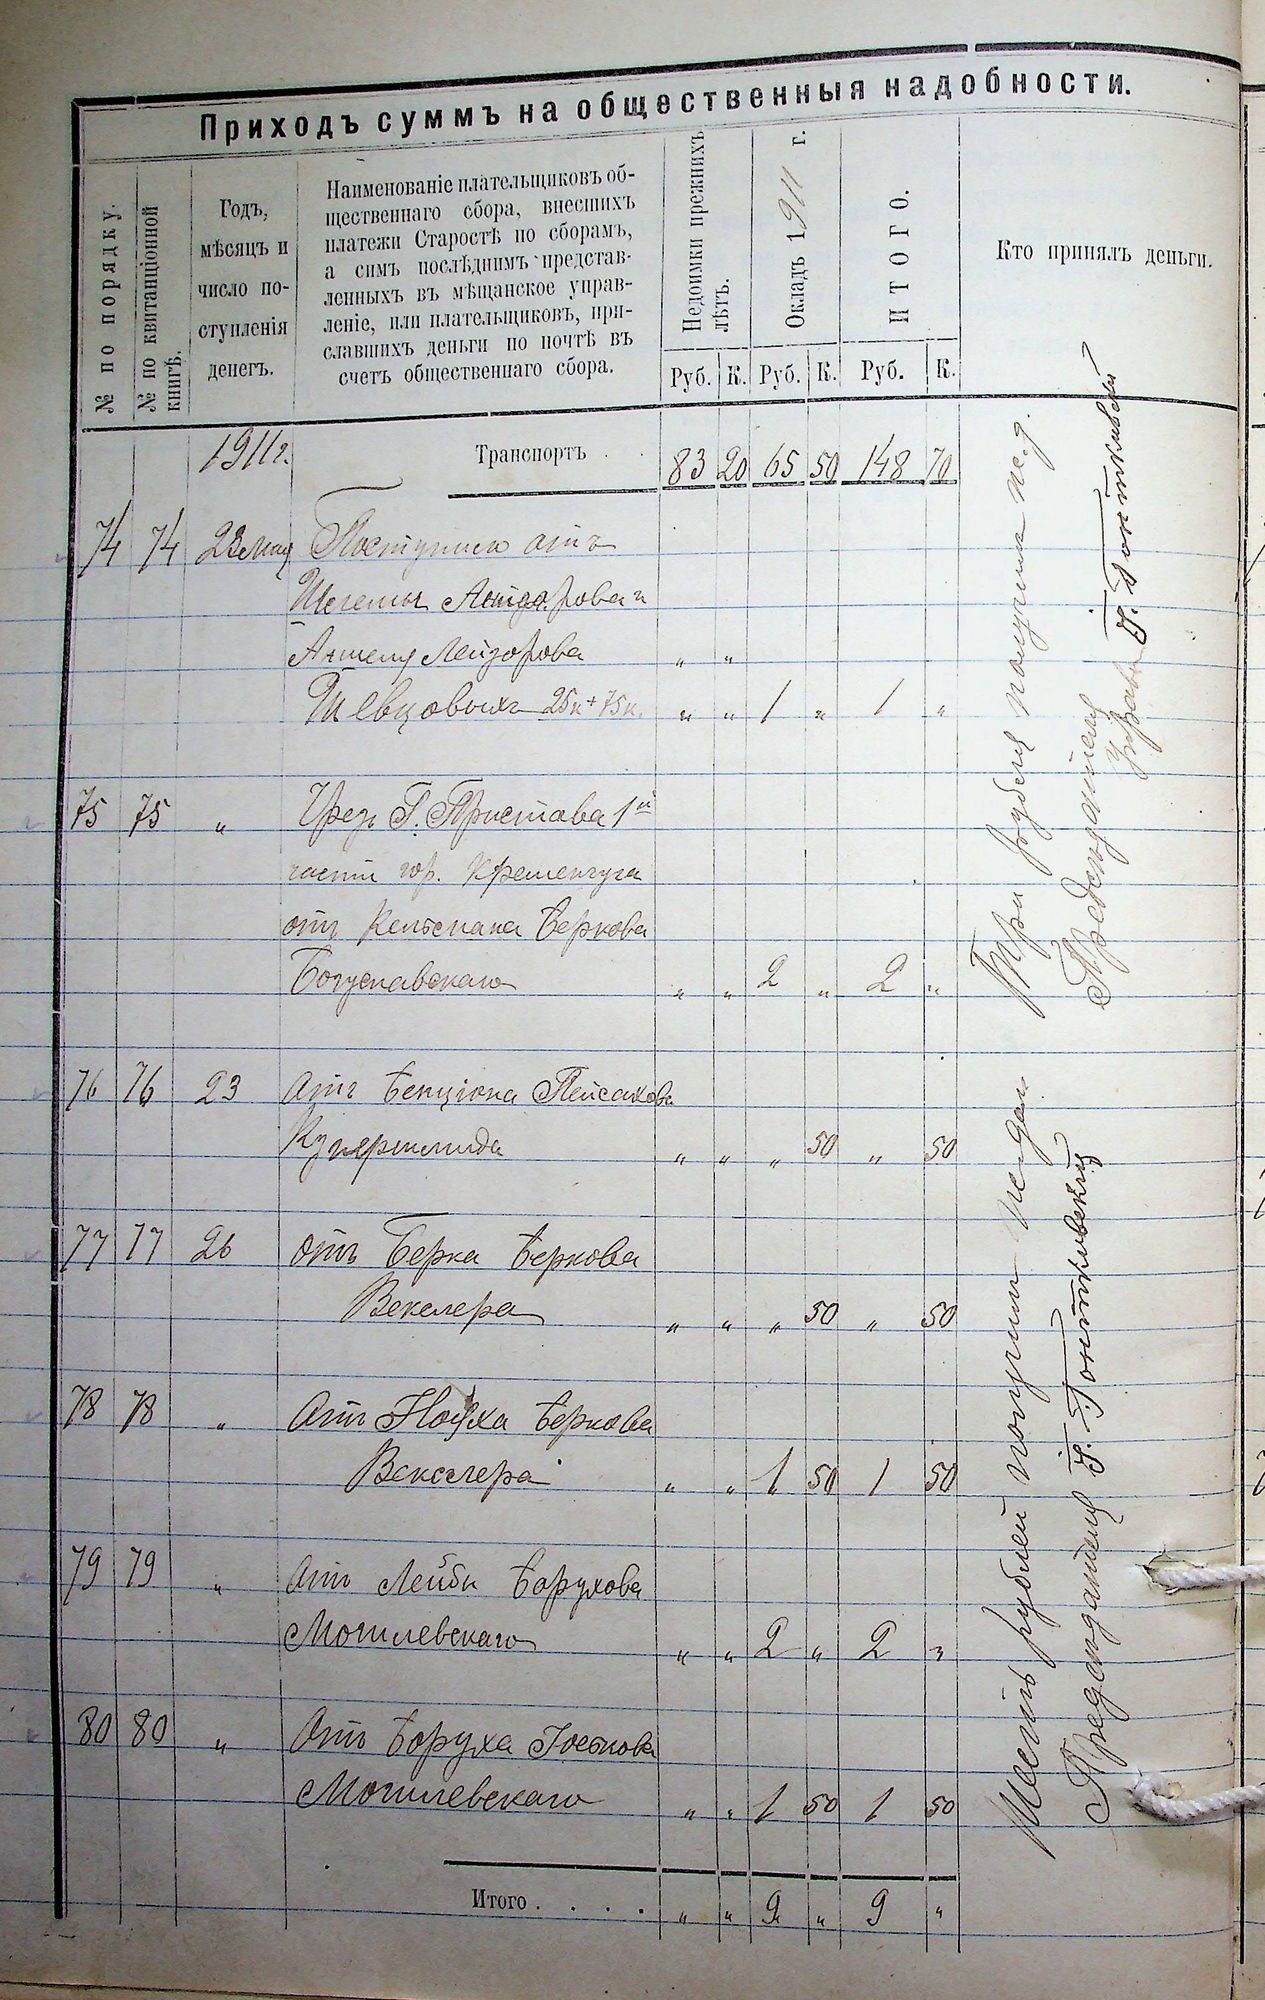 Приходъ суммъ на общественныя надобности.
№ по порядку.
№ по квитанціонной
книгѣ.
Годъ,
мѣсяцъ и
число по-
ступленія
денегъ.
Наименованіе плательщиковъ об-
щественнаго сбора, внесшихъ
платежи Старостѣ по сборамъ,
а симъ послѣднимъ представ-
ленныхъ въ мѣщанское управ-
леніе, или плательщиковъ, при-
славшихъ деньги по почтѣ въ
счетъ общественнаго сбора.
Недоимки прежнихъ
лѣтъ.
Окладъ 1911 г.
ИТОГО.
Кто принялъ деньги.
Руб. К. Руб. К. Руб. К.
1911 г. Транспортъ . . 83 20 65 50 148 70
74 74 23 Мая Поступило отъ
и
Аншеля Лейзорова " "
Шевцовыхъ 25к + 75к. " " 1 " 1 "
75 75 " Чрезъ Г. Пристава 1й
части гор. Кременчуга
отъ Кельмана Беркова
Богуславскаго " " 2 " 2 "
76 76 23 Отъ Бенціона Пейсахова
Купершмида " " " 50 " 50
77 77 26 Отъ Берка Беркова
Векслера " " " 50 " 50
78 78 " Отъ Ноуха Беркова
Векслера " " 1 50 1 50
79 79 " Отъ Лейбы Борухова
Могилевскаго " " 2 " 2 "
80 80 " Отъ Боруха
Могилевскаго " " 1 50 1 50
Итого . . . . " " 9 " 9 "
Три рубля получилъ
Предсѣдателя
Управы
Шесть рублей получилъ
Предсѣдателя